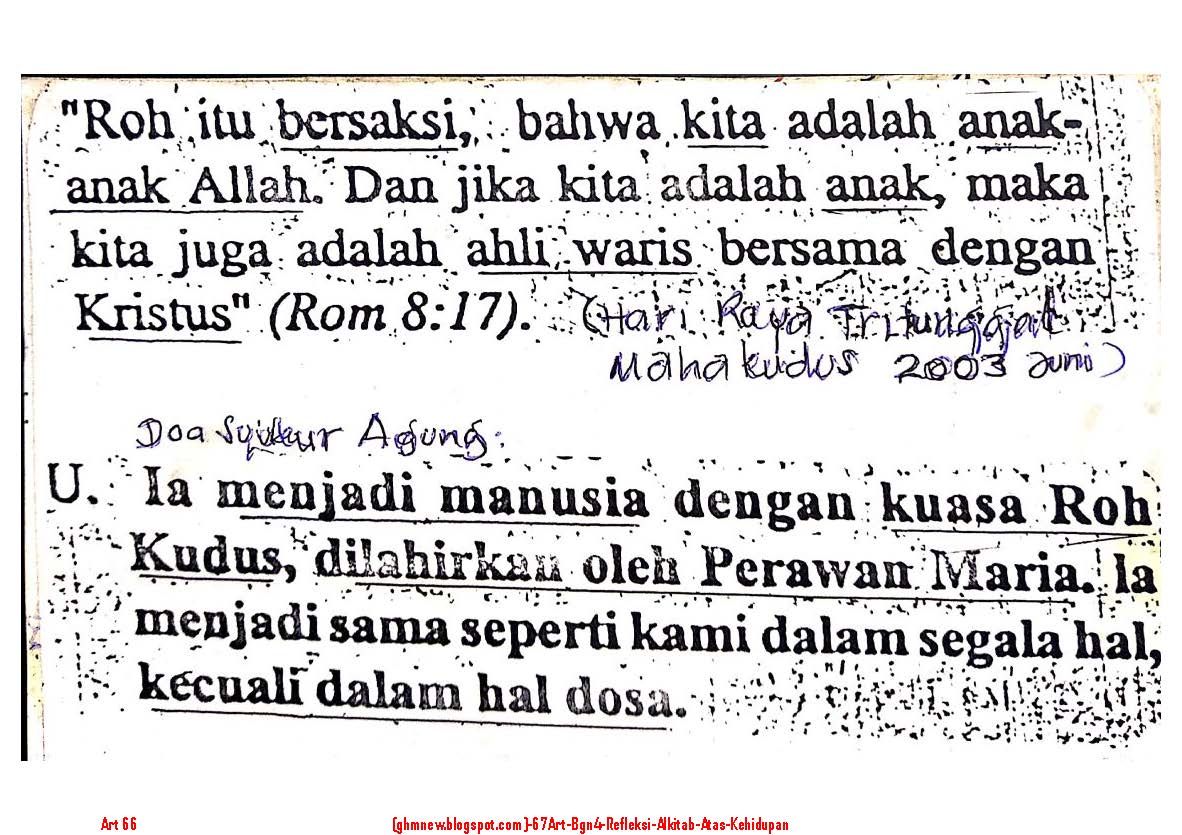 "Roh itu bersaksi, bahwa kita adalah anak-
anak Allah. Dan jika kita adalah anak, maka
kita juga adalah ahli waris bersama dengan
Kristus" (Rom 8:17). (Hari Raya Tritunggal
Mahakudus 2003 Juni)
Doa Syukur Agung:
U. Ia menjadi manusia dengan kuasa Roh
Kudus, dilahirkan oleh Perawan Maria. Ia
menjadi sama seperti kami dalam segala hal,
kecuali dalam hal dosa.
Art 66 (ghmnew.blogspot.com)-67Art-Bgn4-Refleksi-Alkitab-Atas-Kehidupan